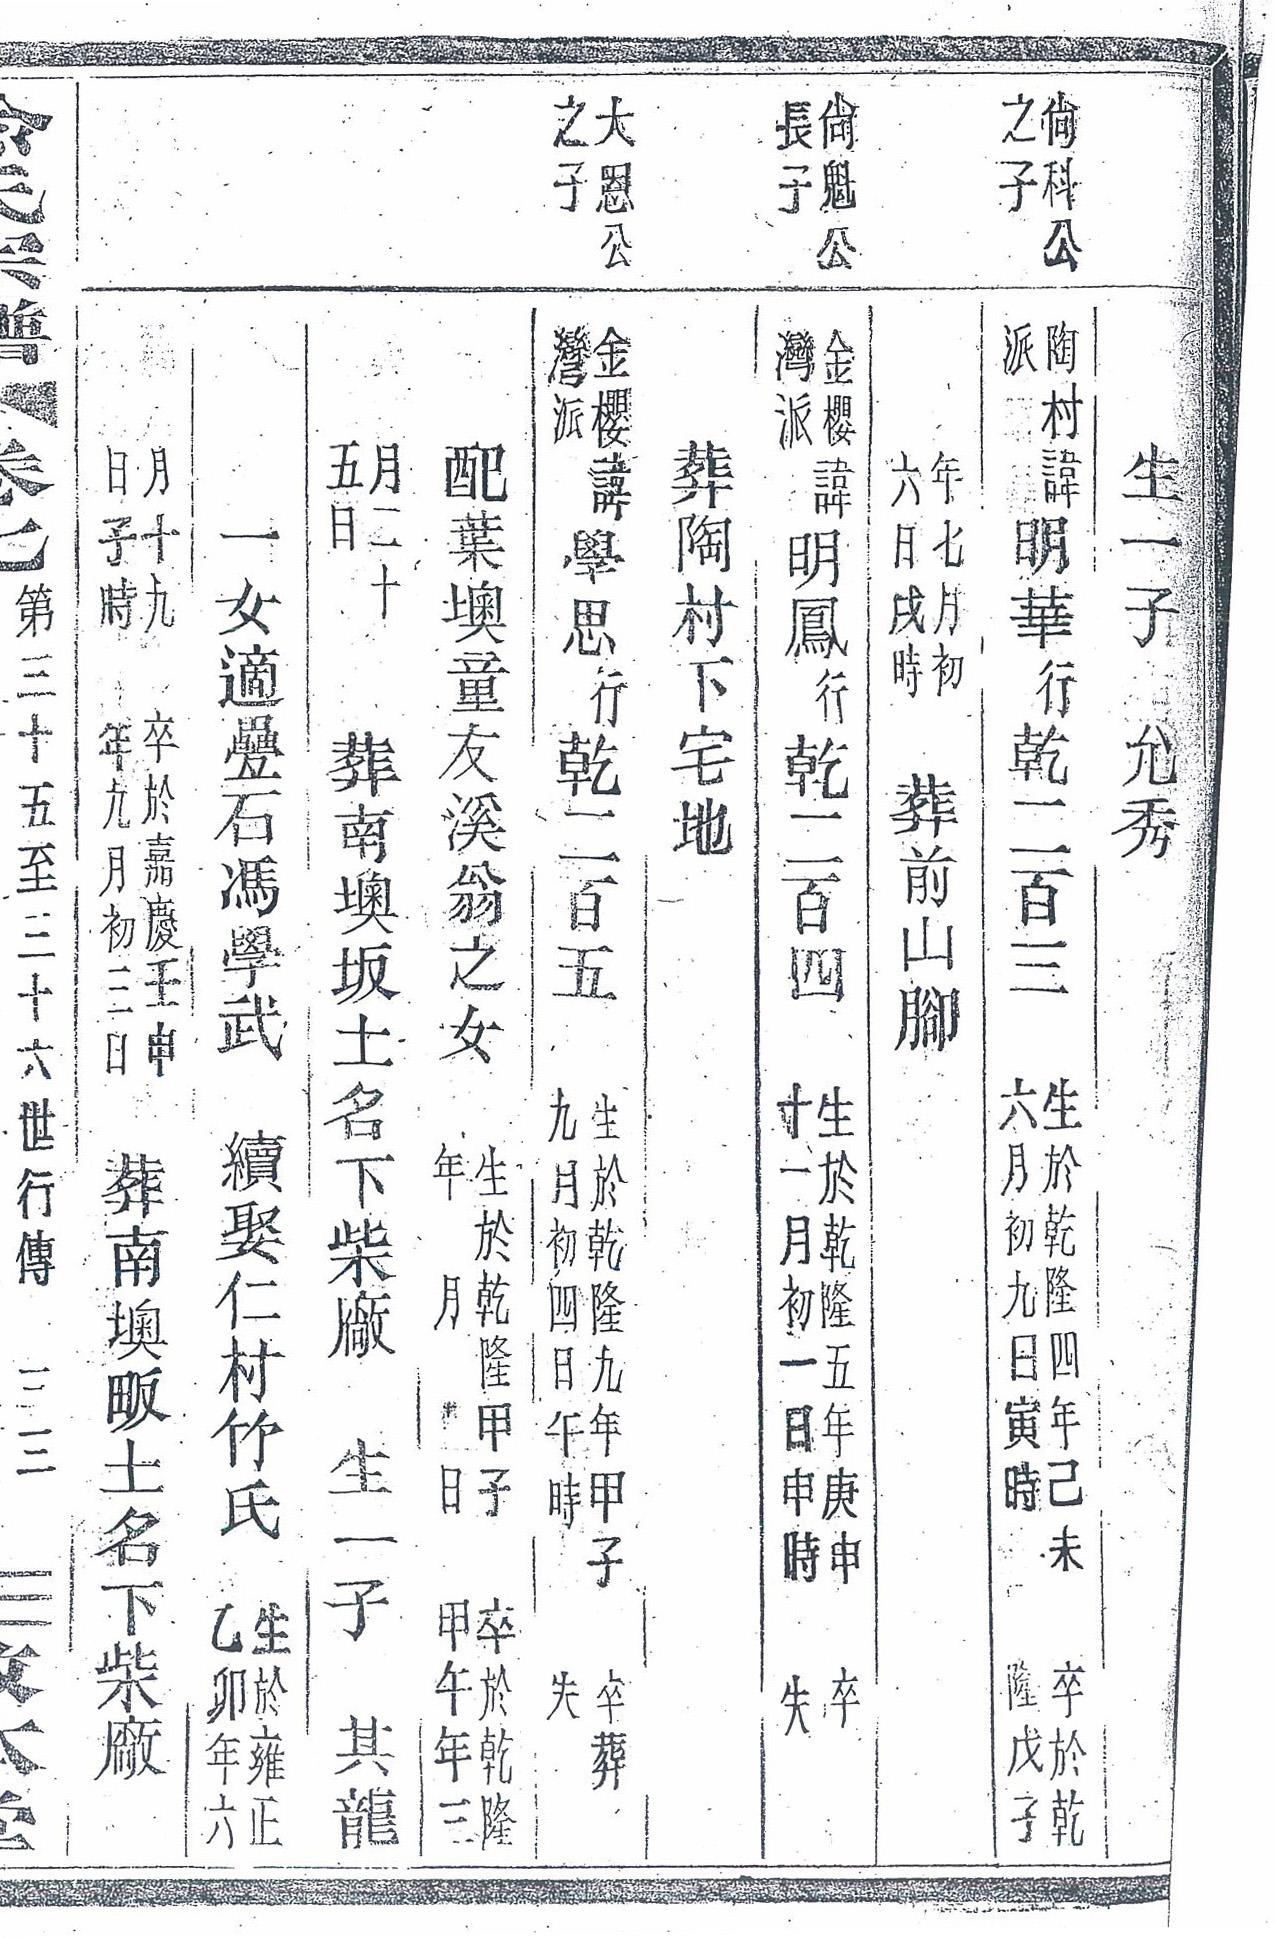 生一子 允秀
尙科公之子
陶村派諱明華行乾二百三 生於乾隆四年己未六月初九日寅時 卒於乾隆戊子
年七月初六日戌時 葬前山腳
尙魁公長子
金櫻灣派諱明鳳行乾二百四 生於乾隆五年庚申十一月初一日申時 卒失
葬陶村下宅地
大恩公之子
金櫻灣派諱學思行乾二百五 生於乾隆九年甲子九月初四日午時 卒葬失
配葉墺童友溪翁之女 生於乾隆甲子年 月 日 卒於乾隆甲午年三
月二十五日 葬南墺坂土名下柴廠 生一子 其龍
一女適疊石馮學武 續娶仁村竹氏 生於雍正乙卯年六
月十九日子時 卒於嘉慶壬申年九月初三日 葬南墺畈土名下柴廠
氏宗譜 卷七 第三十五至三十六世行傳 三三